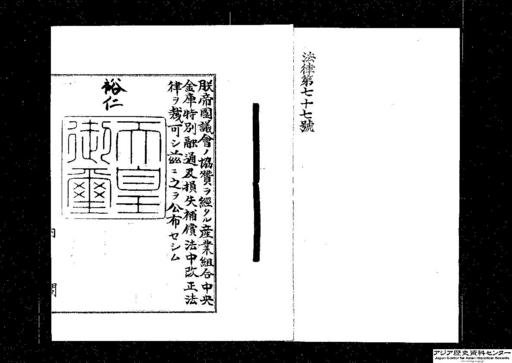 法律第七十七號
朕帝國議會ノ協賛ヲ經タル産業組合中央
金庫特別融通及損失補償法中改正法
律ヲ裁可シ茲ニ之ヲ公布セシム
裕仁
天皇
御璽
内
閣
アジア歴史資料センター
Japan Center for Asian Historical Records